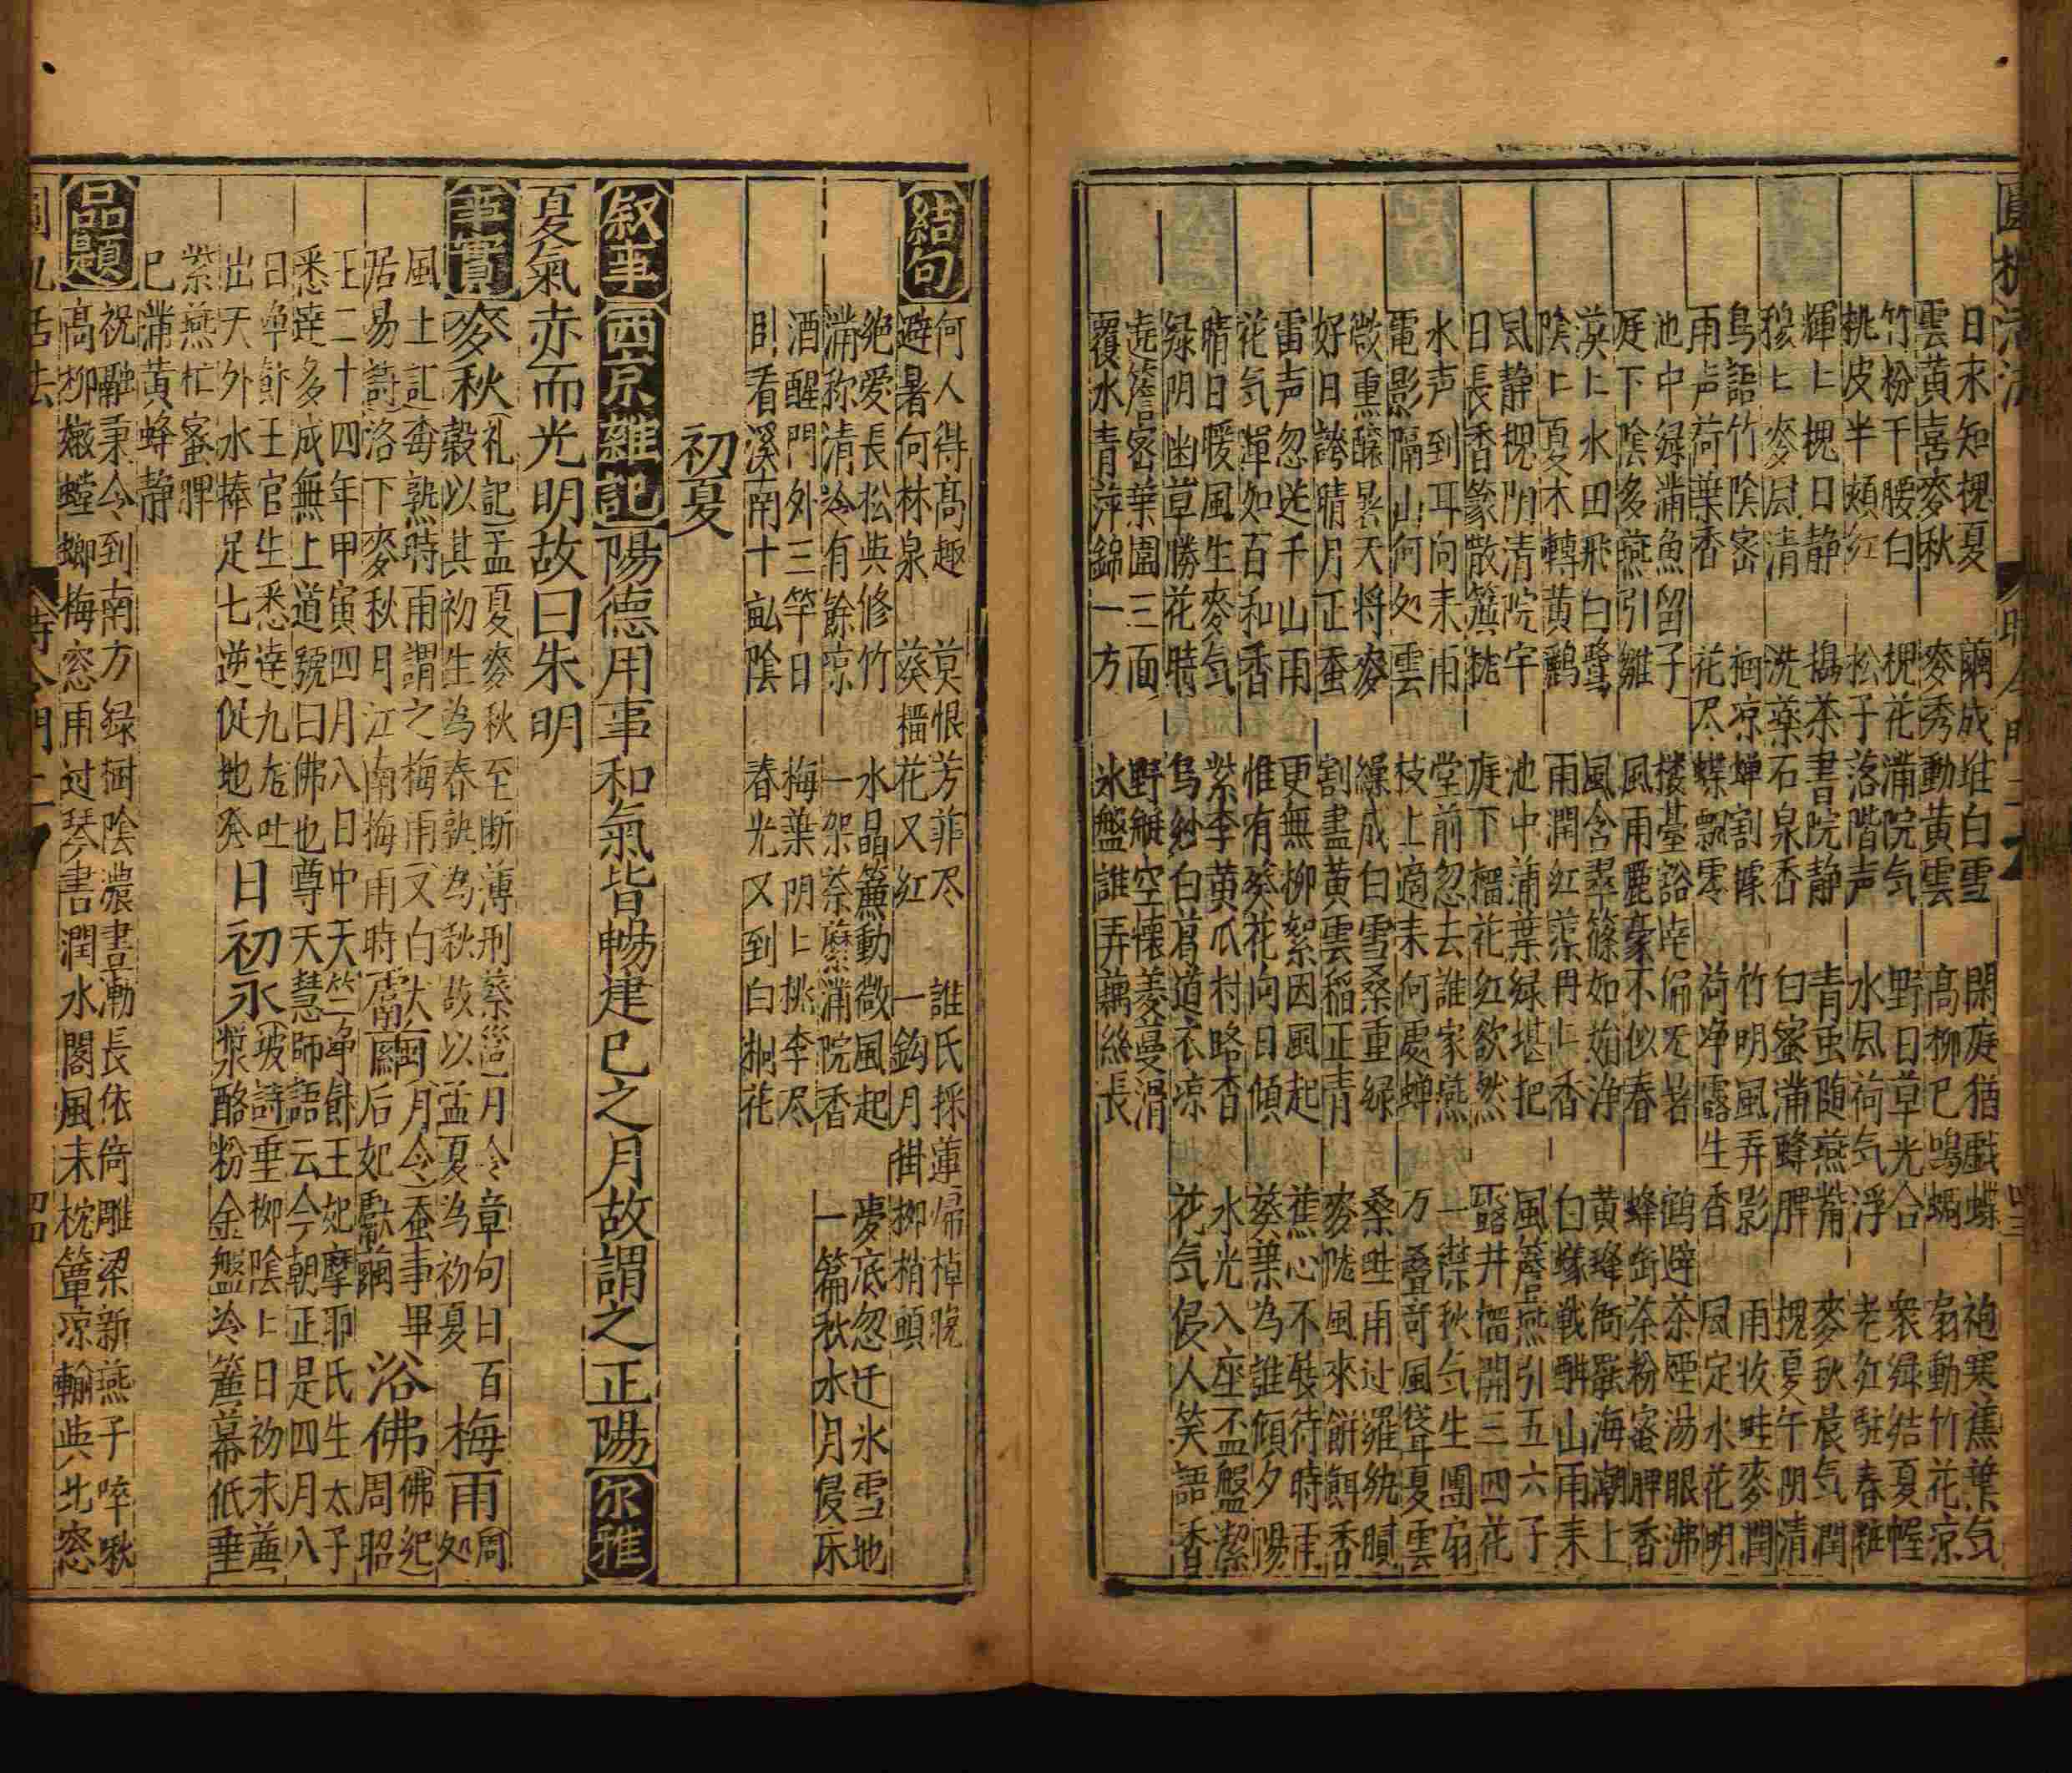 圓機活法
時令門二
日来知槐夏　繭成堆白雪　閑庭猶戲蝶　袍寒蕉葉气
雲黄喜麥秋　麥秀動黄雲　髙柳已鳴蜩　扇動竹花凉
竹粉千腰白　槐花滿院气　野日草光合　衆緑结夏幄
桃皮半頰红　松子落階声　水凨荷气浮　老红駐春粧
輝匕槐日静　搗茶書院静　青虫随燕觜　麥秋晨气潤
穆匕麥凨清　洗藥石泉香　白蜜滿蜂脾　槐夏午阴清
鳥語竹陰宻　桐凉蝉割據　竹明風弄影　雨收畦麥潤
雨声荷葉香　花尽蝶飄零　荷净露生香　凨定水花明
池中緑滿魚留子　楼臺谿偏旡暑　鶴避茶煙湯眼沸
庭下陰多燕引雛　風雨麗豪不似春　蜂衙茶粉蜜脾香
漠匕水田飛白鷺　風含翠篠如娟浄　黄蜂衙罷海潮上
陰匕夏木轉黄鸝　雨潤红蕖冉匕香　白蟻戦酣山雨来
凨静槐阴清院宇　池中蒲葉緑堪把　風簷燕引五六子
日長香篆散簾栊　庭下榴花红欲然　露井榴開三四花
水声到耳向来雨　堂前忽去誰家燕　一襟秋气生團扇
電影隔山何処雲　枝上適来何處蝉　万疊竒風夏雲
微熏醸暑天将麥　繰成白雪桑重緑　桑畦雨过羅紈膩
好日誇晴月正蚕　割盡黄雲稻正青　麥陇風來餅餌香
雷声忽送千山雨　更無柳絮因風起　蕉心不待時雨
花气渾如百和香　惟有葵花向日傾　葵葉為誰傾夕陽
晴日暖風生麥气　紫李黄爪村路香　水光入座盃盤潔
緑阴幽草勝花時　烏紗白葛道衣凉　花气侵人笑語香
遶簷宻葉圍三面　野艇空懐菱蔓滑
覆水青萍錦一方　氷盤誰弄藕絲長
結句　何人得髙趣　莫恨芳菲尽　誰氏採蓮歸棹晚
避暑何林泉　葵榴花又红　一鈎月掛柳梢頭
絶愛長松與修竹　水晶簾動微風起　夢底忽迁氷雪地
滿称清冷有餘凉　一架荼蘼滿院香　一篇秋水月侵床
酒醒門外三竿日　梅葉阴匕桃李尽
卧看溪南十畝陰　春光又到白桐花
初夏
叙事　西京雜記　陽德用事和氣皆暢建巳之月故謂之正陽　尔雅
夏氣赤而光明故曰朱明
事實　麥秋　礼記孟夏麥秋至断薄刑蔡邕月令章句曰百
穀以其初生為春熟為秋故以孟夏為初夏　梅雨　周処
風土記梅熟時雨謂之梅雨又白　繭　月令蚕事畢
居易詩洛下麥秋月江南梅雨時　后妃獻繭　浴佛　佛紀周昭
王二十四年甲寅四月八日中天竺净飯王妃摩耶氏生太子
悉達多成無上道號曰佛也尊天慧師語云今朝正是四月八
日净飯王宫生悉達九龙吐
出天外水捧足七逆促地癸　日初永　坡詩垂柳陰匕日初永蔗
漿酪粉金盤冷簾幕低垂
紫燕忙蜜脾
已滿黄蜂静
品題　祝融秉令到南方緑樹陰濃晝漸長依倚雕梁新燕子啐啾
髙柳嫰螳螂梅窓雨过琴書潤水閣風来枕簟凉輸與北窓
圓機活法
時令門二